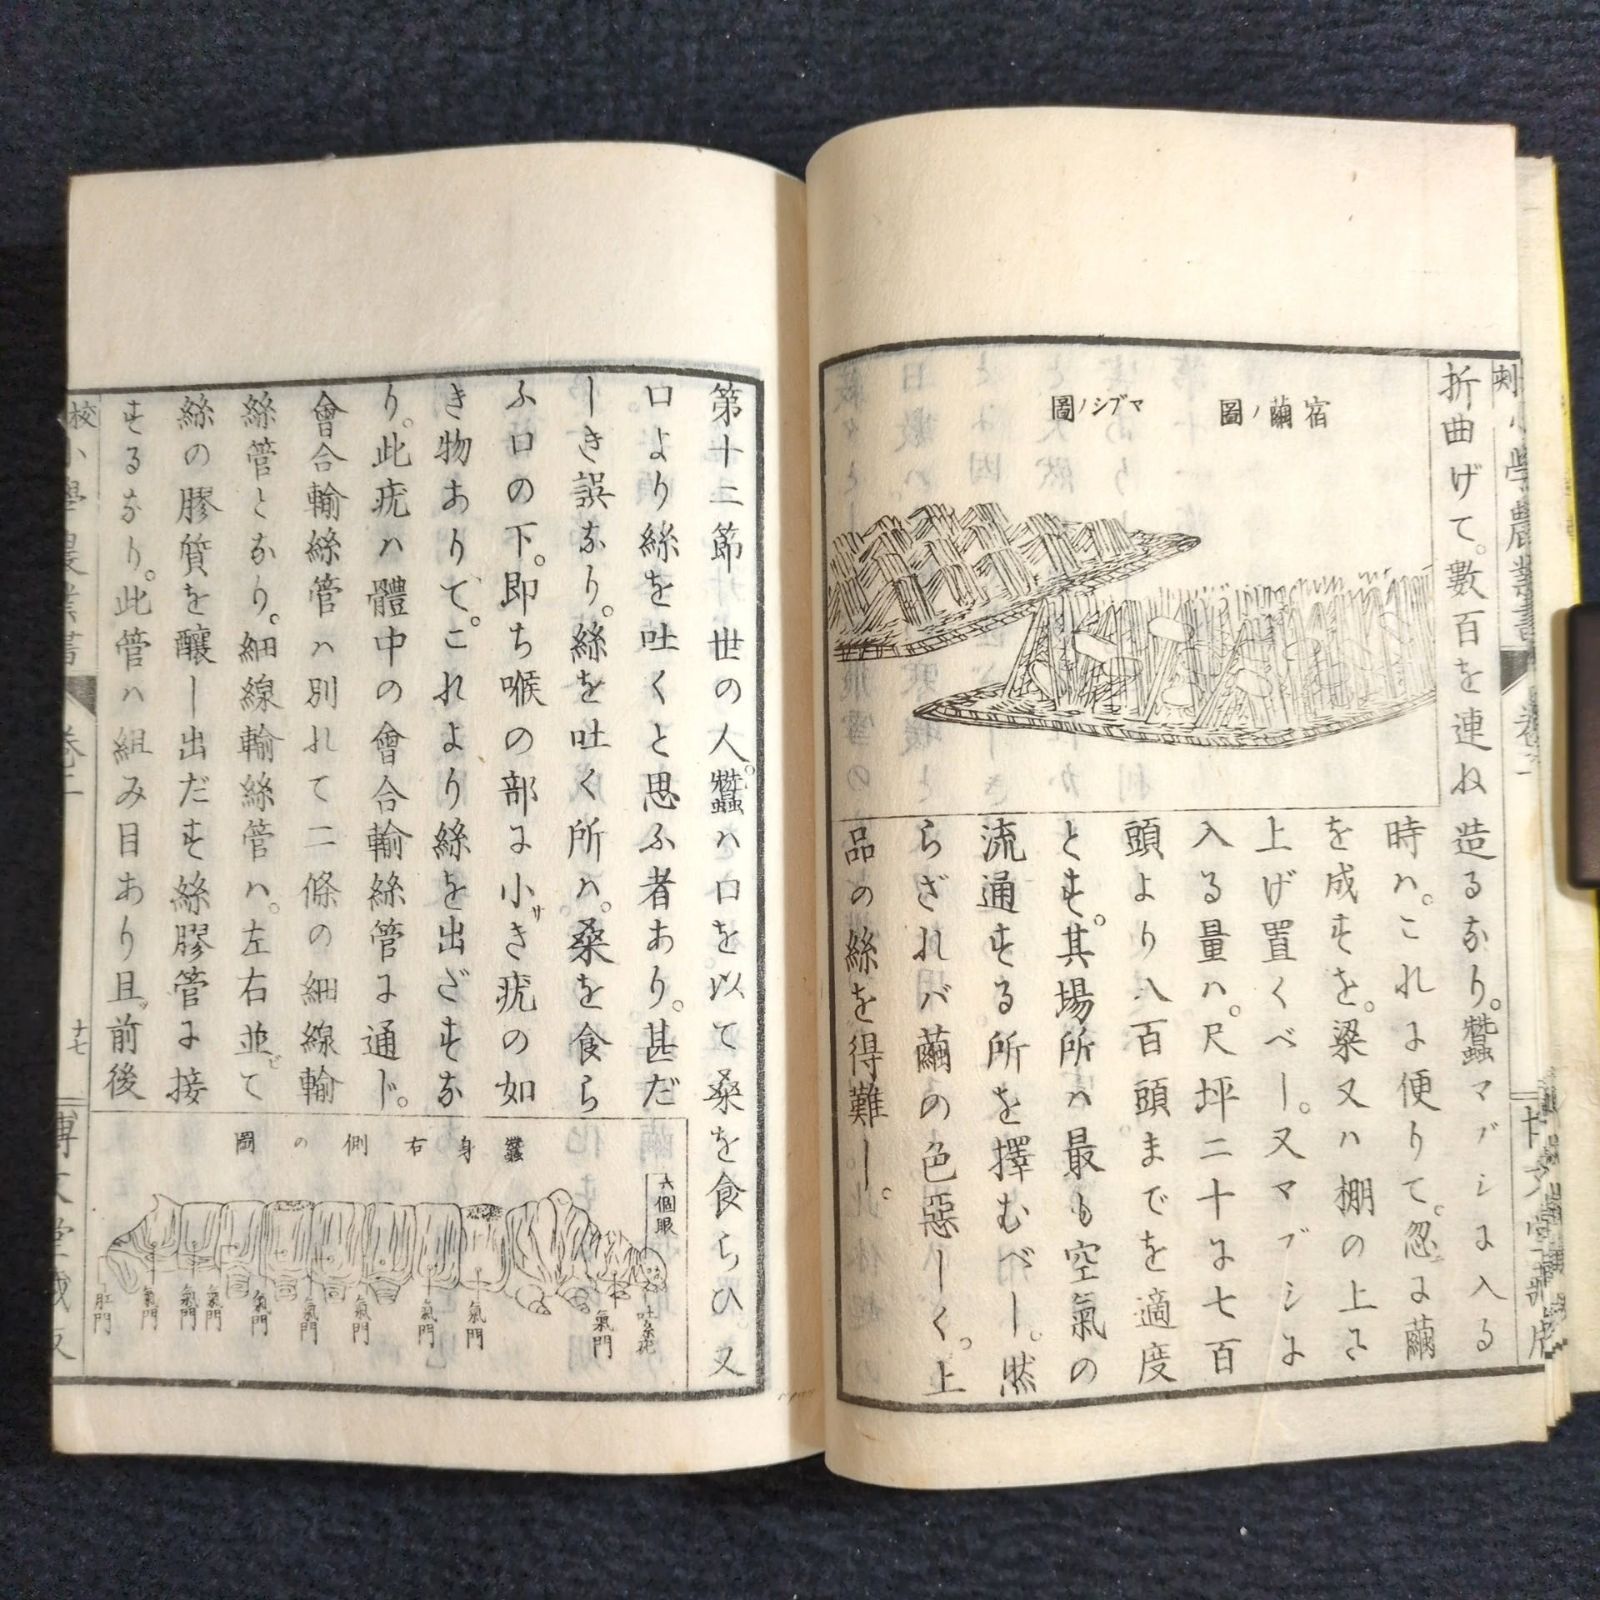 折曲げて。數百を連ね造るなり。蠶マバシに入る
宿繭ノ圖
マブシノ圖
時ハ。これに便りて。忽に繭
を成すを。梁又ハ棚の上に
上げ置くべし。又マブシに
入る量ハ。尺坪二十に七百
頭より八百頭までを適度
とす。其場所ハ最も空氣の
流通する所を擇むべし。然
らざれバ繭の色惡しく。上
品の絲を得難し。
第十二節 世の人。蠶ハ口を以て桑を食らひ。又
口より絲を吐くと思ふ者あり。甚だ
しき誤なり。絲を吐く所ハ。桑を食ら
ふ口の下。即ち喉の部に小サき疣の如
き物ありて。これより絲を出だすな
り。此疣ハ體中の會合輸絲管に通ド。
會合輸絲管ハ別れて二條の細線輸
絲管となり。細線輸絲管ハ。左右並びて
絲の膠質を釀し出だす絲膠管に接
するなり。此管ハ組み目あり且。前後
蠶身右側の圖
六個眼
吐糸疣
氣門
氣門
氣門
氣門
氣門
氣門
氣門
氣門
氣門
肛門
小學農業書
卷二
十七
博文堂藏版